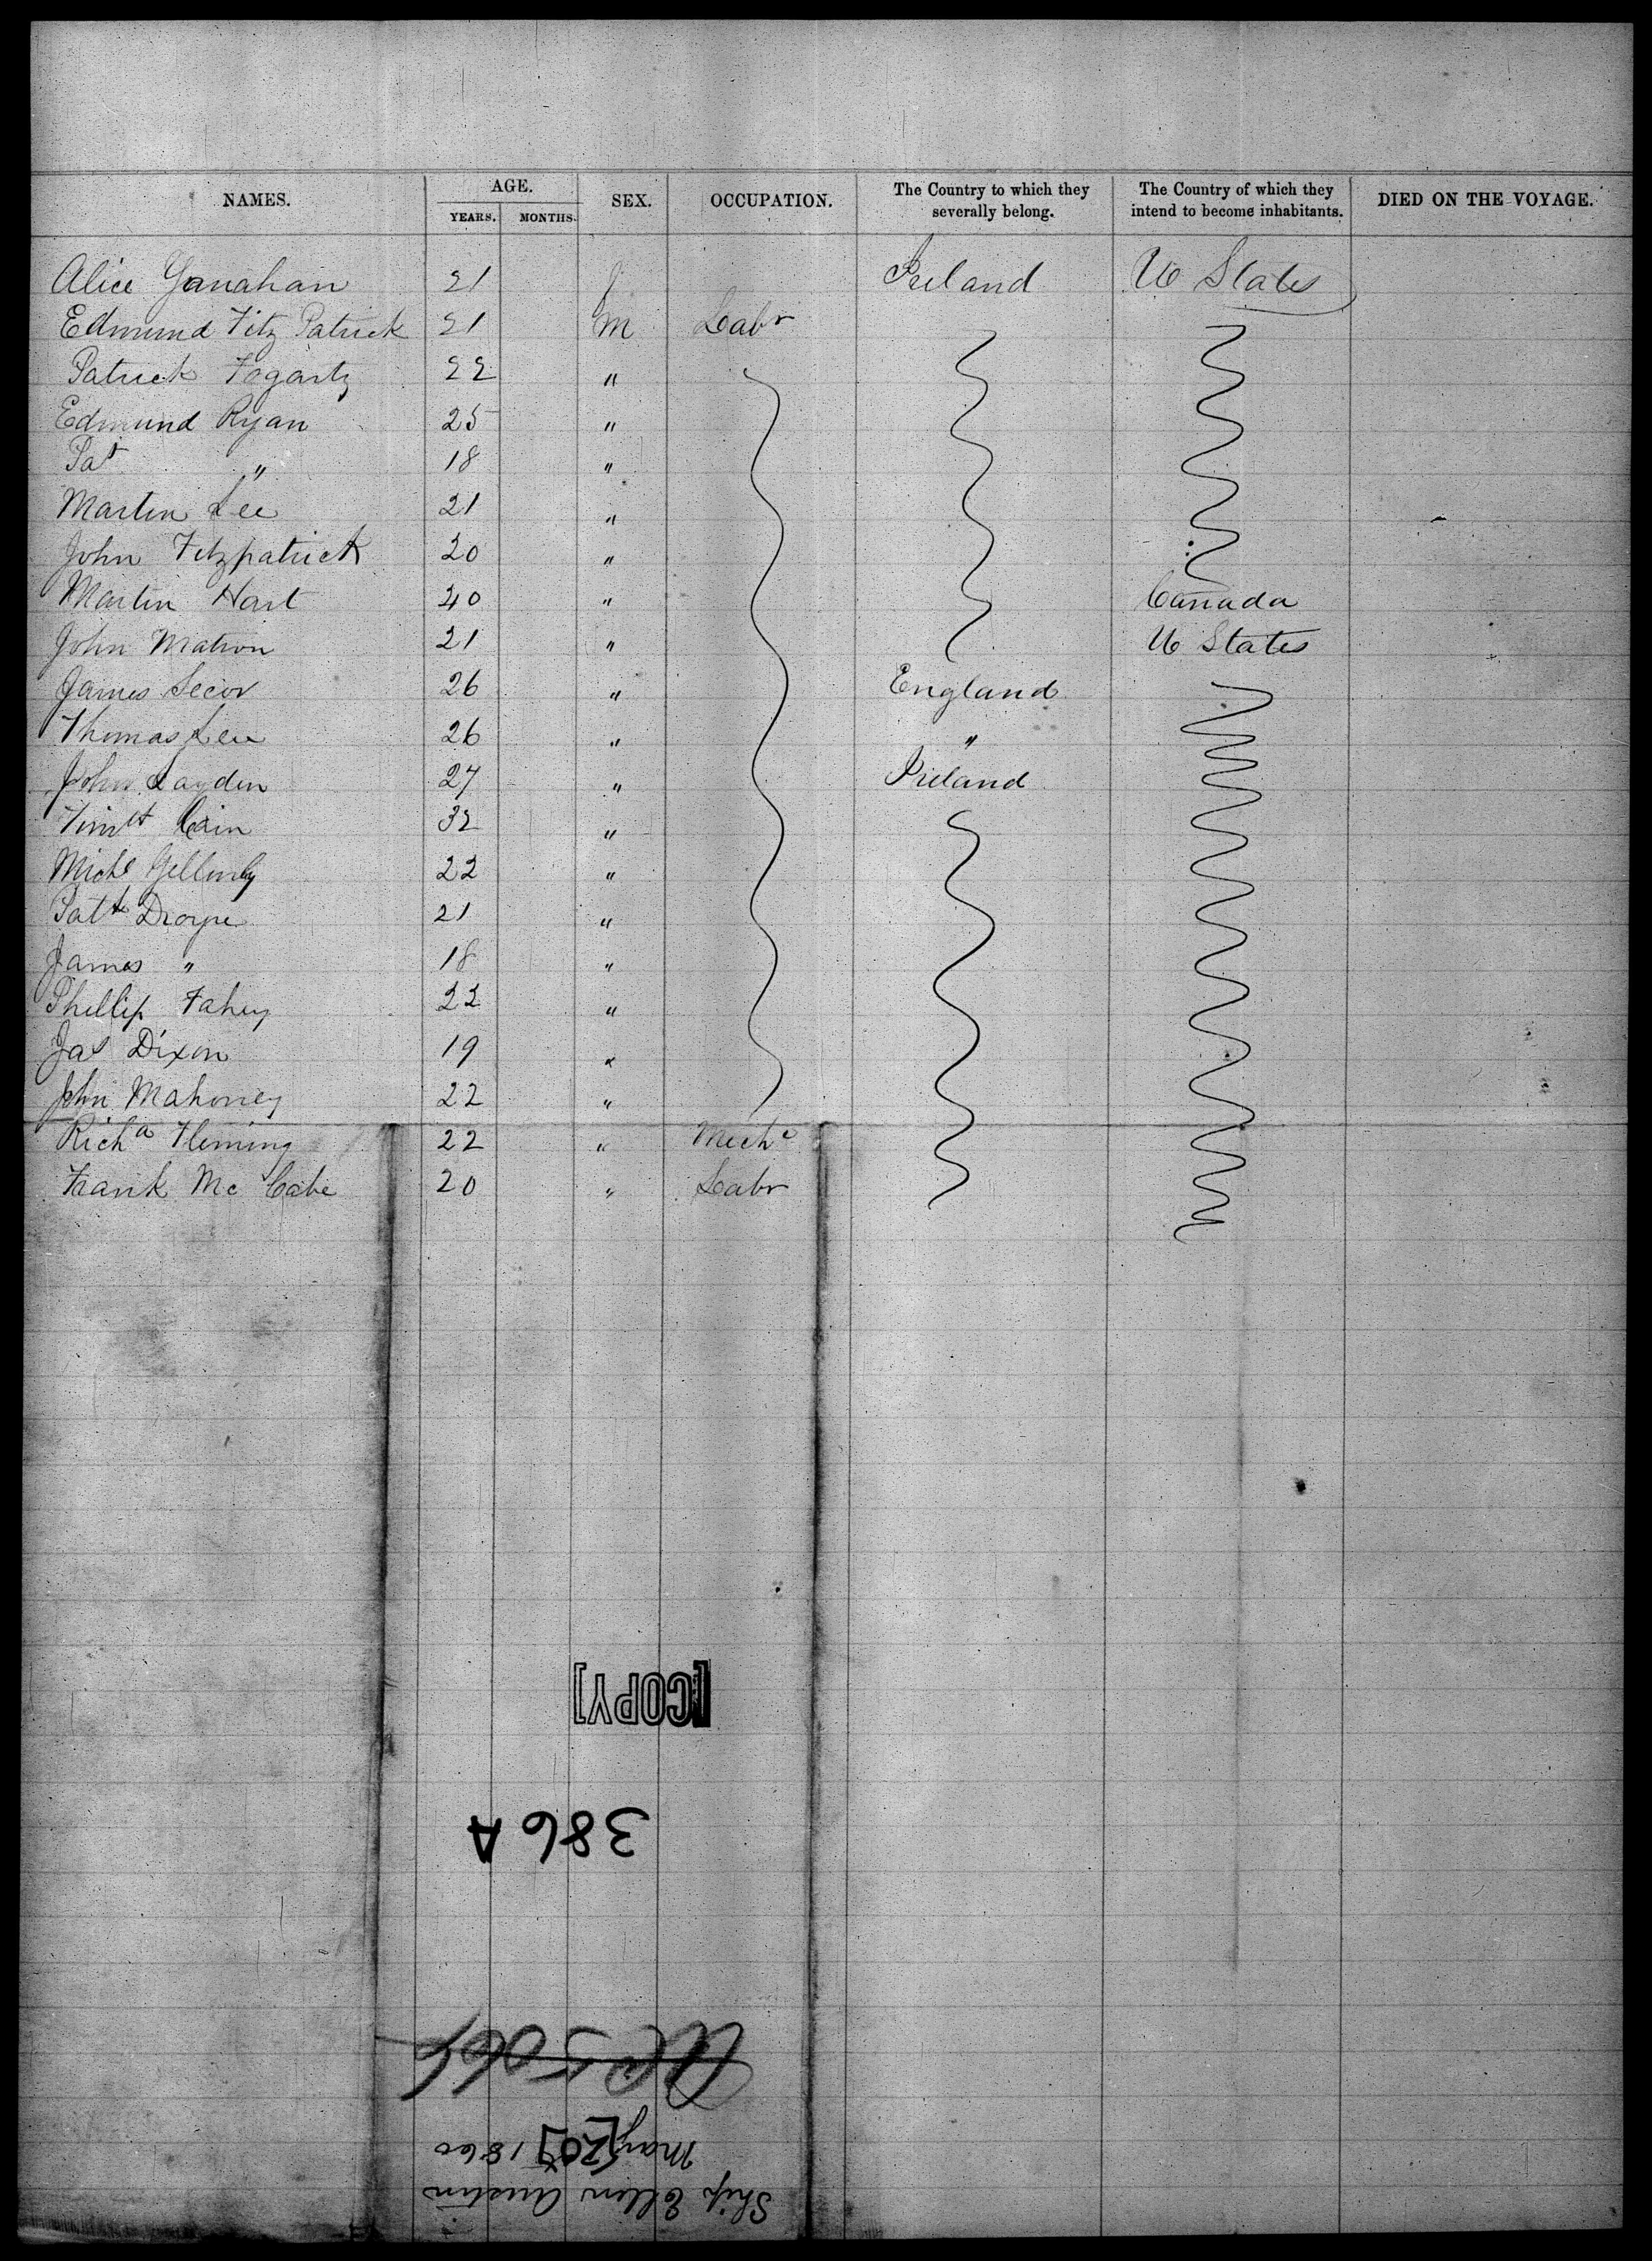 NAMES. AGE. YEARS. MONTHS. SEX. OCCUPATION. The Country to which they severally belong. The Country of which they intend to become inhabitants. DIED ON THE VOYAGE.
Alice 21 f Ireland U States
Edmund Fitz Patrick 21 M Labr
Patrick Fogarty 22 "
Edmund Ryan 25 "
Pat " 18 "
Martin Lee 21 "
John Fitzpatrick 20 "
Martin Hart 40 " Canada
John 21 " U States
James Secor 26 " England
Thomas 26 " "
John Layden 27 " Ireland
Timth Cain 32 "
Michl 22 "
Patk 21 "
James " 18 "
Phillip Fahey 22 "
Jas Dixon 19 "
John Mahoney 22 "
Richd Fleming 22 " Mechc
Frank Mc Cabe 20 " Labr
[COPY]
386 A
Ship Ellen Austin
May [20] 1860